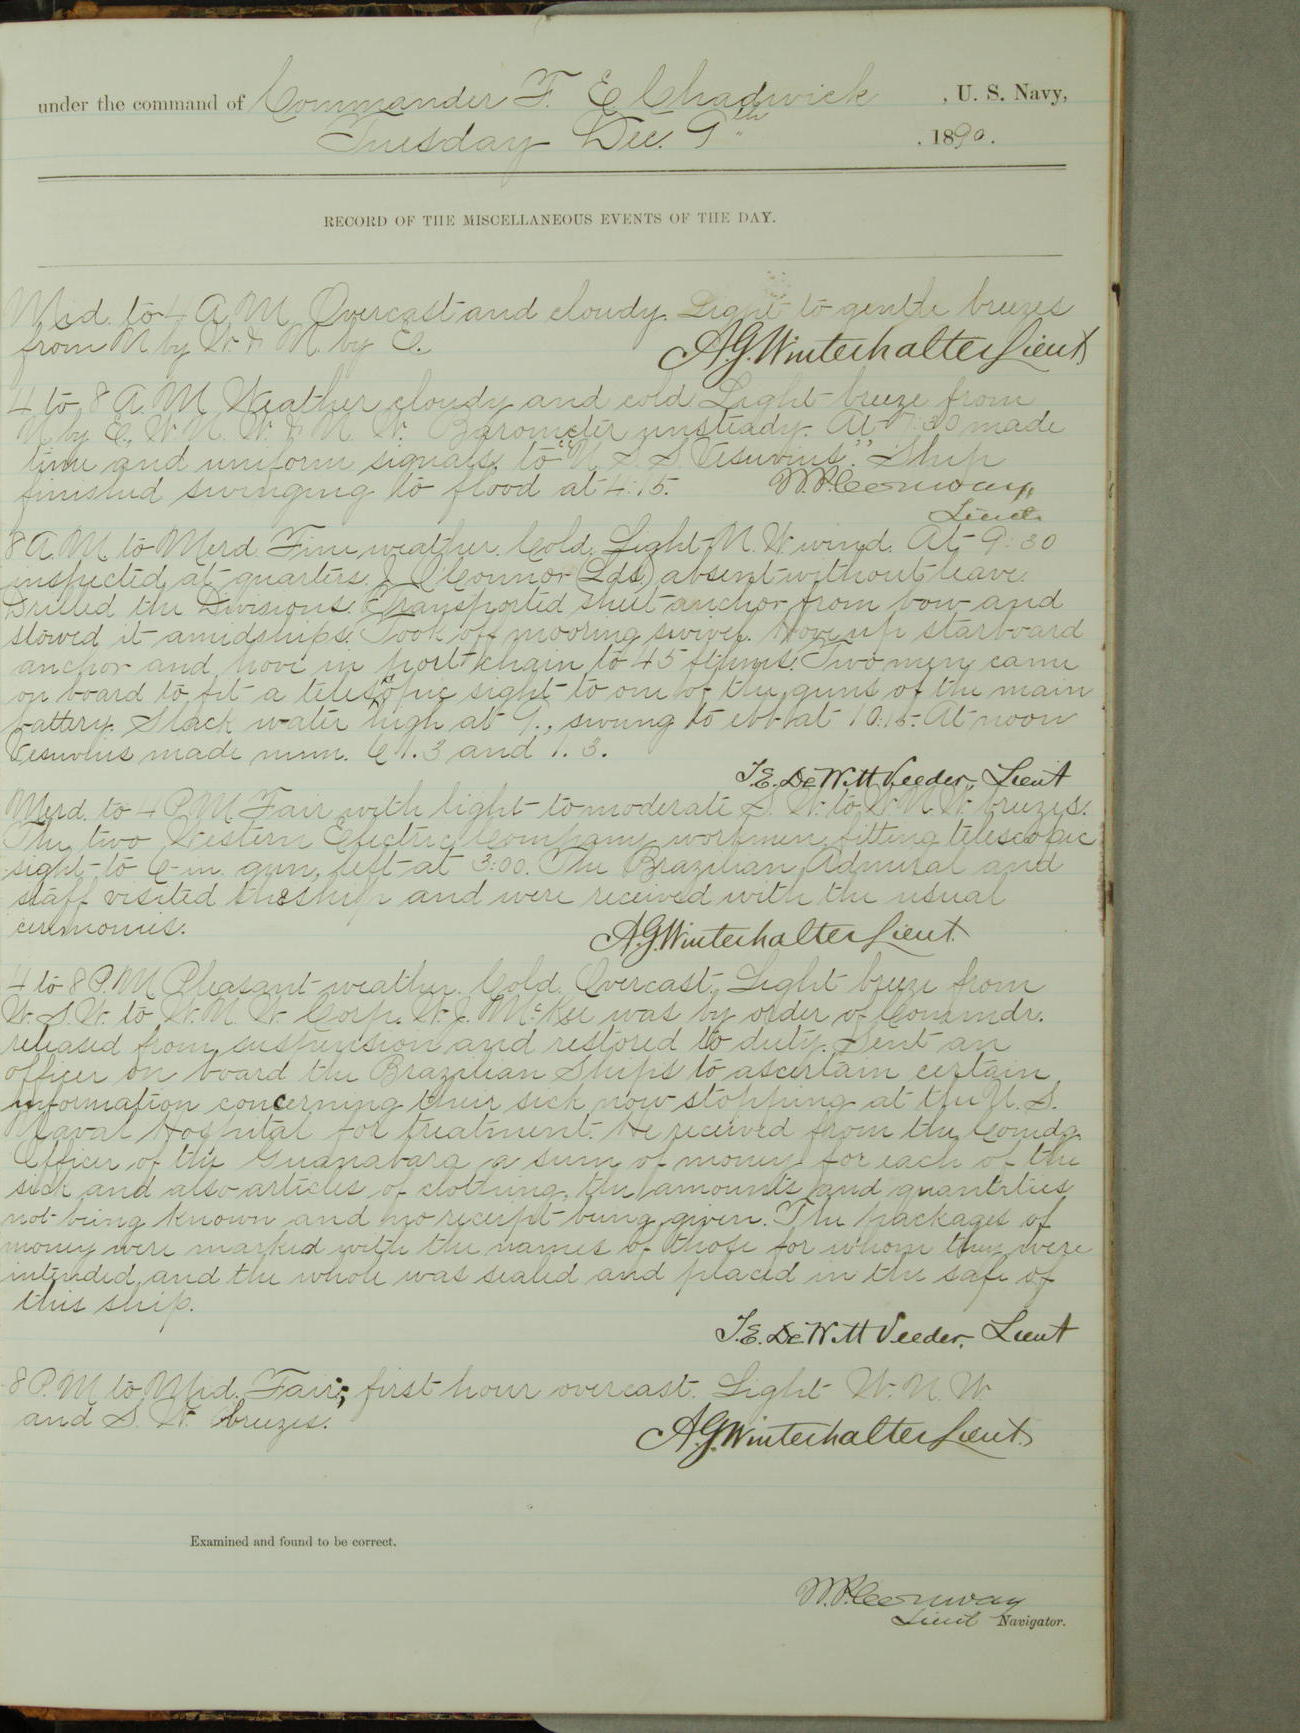 under the command of Commander F. E Chadwick , U. S. Navy,
Tuesday Dec. 9th , 1890.
RECORD OF THE MISCELLANEOUS EVENTS OF THE DAY.
Mid. to 4 A M Overcast and cloudy. Light to gentle breezes
from N by W. & N. by E. A.G. Winterhalter Lieut
4 to 8 A. M Weather cloudy and cold Light breeze from
N by E, W. N. W. & N. W. Barometer unsteady. At 7:30 made
time and uniform signals, to "U. S. S. Vesuvius". Ship
finished swinging to flood at 4:15. W.P. Conway,
Lieut.
8 A. M to Merid. Fine weather. Cold. Light N. W wind. At 9:30
inspected at quarters. J. O'Connor (Lds.) absent without leave.
Drilled the Divisions. Transported sheet anchor from bow and
stowed it amidships. Took off mooring swivel. Hove up starboard
anchor and hove in port chain to 45 fthms. Two men came
on board to fit a telescopic sight to one of the guns of the main
battery. Slack water high at 9., swung to ebb at 10.15. At noon
Vesuvius made num. 61.3 and 1.3.
T.E. DeWitt Veeder, Lieut
Merid. to 4 P.M Fair with light to moderate S. W. to W. N. W. breezes.
The two Western Electric Company workmen fitting telescopic
sight to 6-in gun, left at 3:00. The Brazilian Admiral and
staff visited the ship and were received with the usual
ceremonies. A.G. Winterhalter Lieut.
4 to 8 P.M Pleasant weather. Cold. Overcast. Light breeze from
W. S. W. to W. N. W. Corp. W. J. McKee was by order of Commdr.
released from suspension and restored to duty. Sent an
officer on board the Brazilian Ships to ascertain certain
information concerning their sick now stopping at the U. S.
Naval Hospital for treatment. He received from the Comdg
Officer of the Guanabara a sum of money for each of the
sick and also articles of clothing, the amounts and quantities
not being known and no receipt being given. The packages of
money were marked with the names of those for whom they were
intended, and the whole was sealed and placed in the safe of
this ship.
T.E. DeWitt Veeder, Lieut
8 P. M to Mid. Fair; first hour overcast. Light W. N. W.
and S. W. breezes. A.G. Winterhalter Lieut.
Examined and found to be correct.
W.P. Conway
Lieut Navigator.